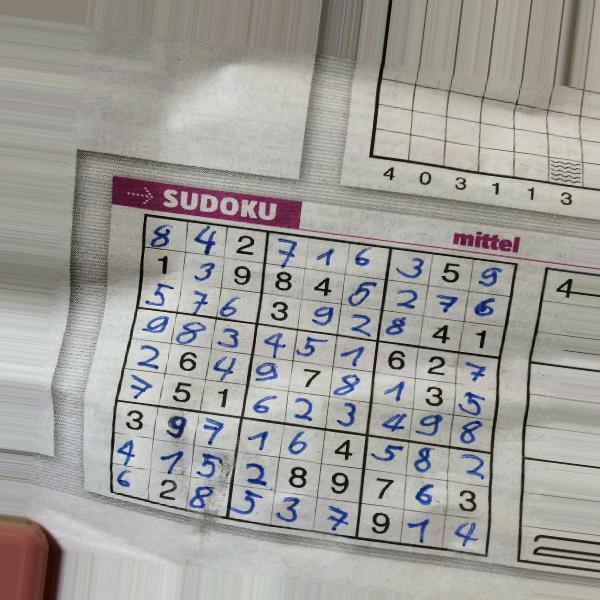 4 0 3 1 1 3
SUDOKU
mittel
8 4 2 7 1 6 3 5 9
1 3 9 8 4 5 2 7 6
5 7 6 3 9 2 8 4 1
9 8 3 4 5 1 6 2 7
2 6 4 9 7 8 1 3 5
7 5 1 6 2 3 4 9 8
3 9 7 1 6 4 5 8 2
4 1 5 2 8 9 7 6 3
6 2 8 5 3 7 9 1 4
4